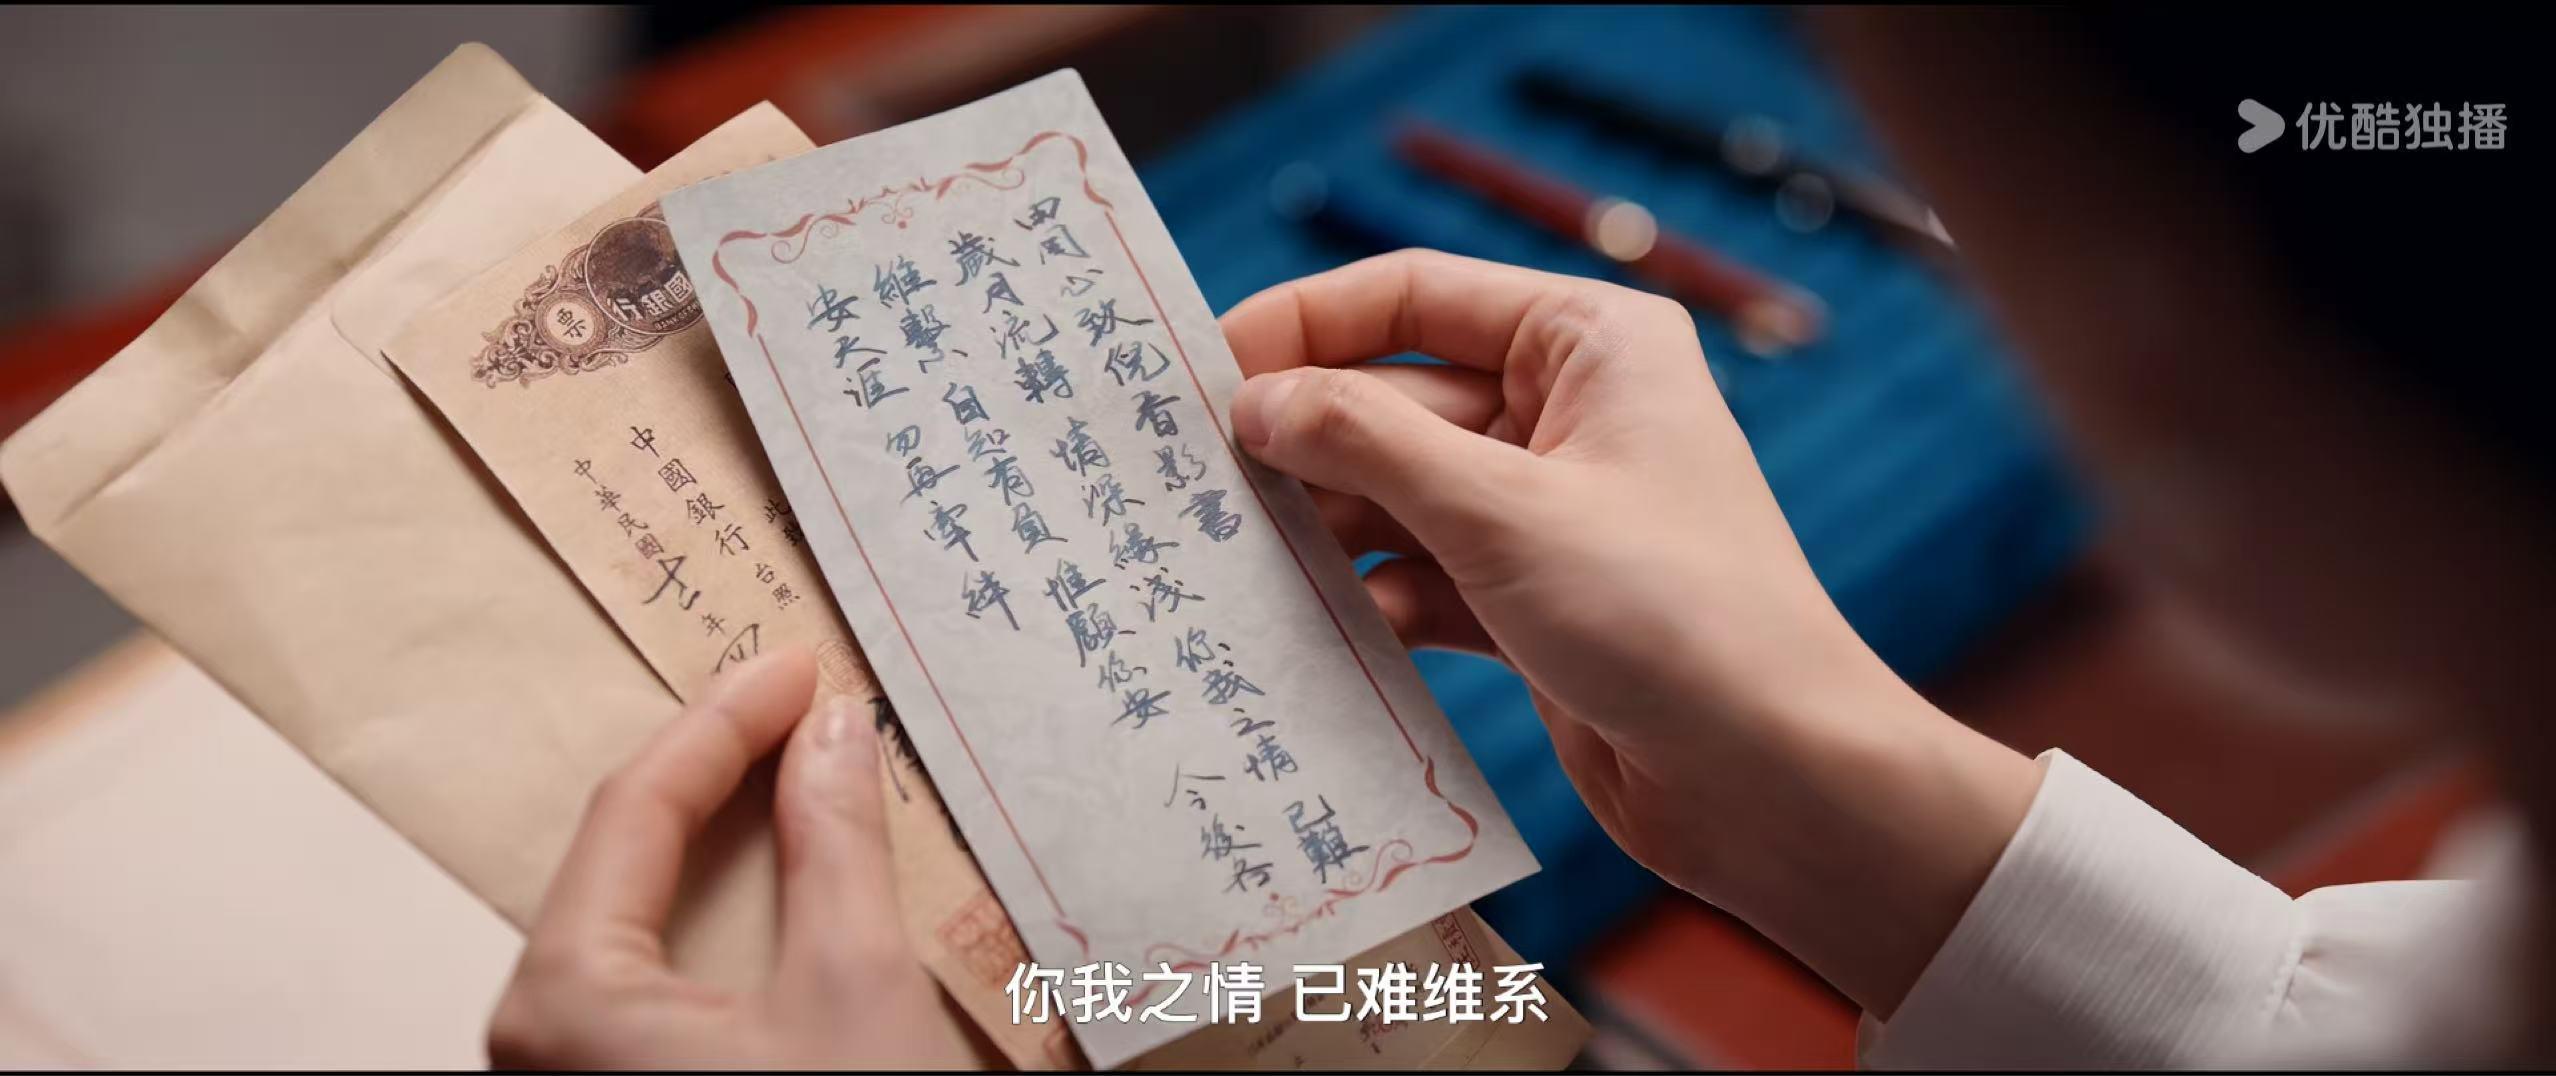 优酷独播
田周心致倪香影書
歲月流轉 情深緣淺 你我之情 已難
維繫 自知有負 惟願你安 今後各
安天涯 勿再牽絆
行銀國
票
此致
中國銀行 台照
中華民國 年
你我之情 已难维系